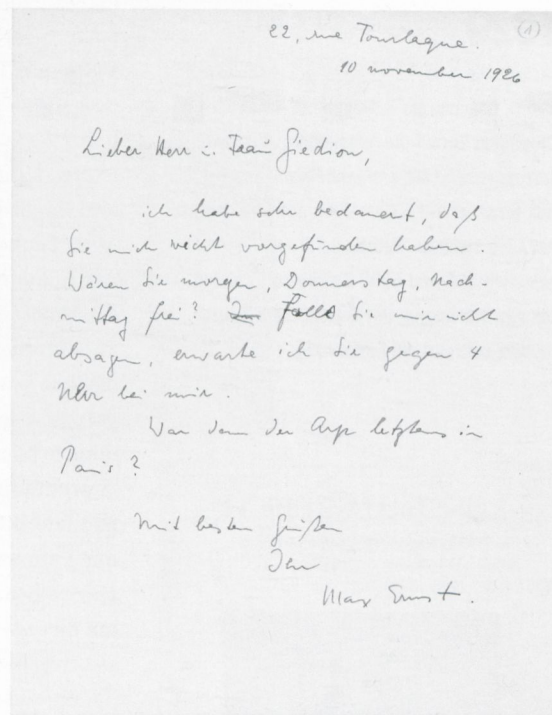 (1)
22, rue Tourlaque.
10 november 1926
Lieber Herr u. Frau Giedion,
ich habe sehr bedauert, daß
Sie mich nicht vorgefunden haben.
Wären Sie morgen, Donnerstag, Nach-
mittag frei? Falls Sie mir nicht
absagen, erwarte ich Sie gegen 4
Uhr bei mir.
War denn der Arp letztens in
Paris?
Mit besten Grüßen
Ihr
Max Ernst.